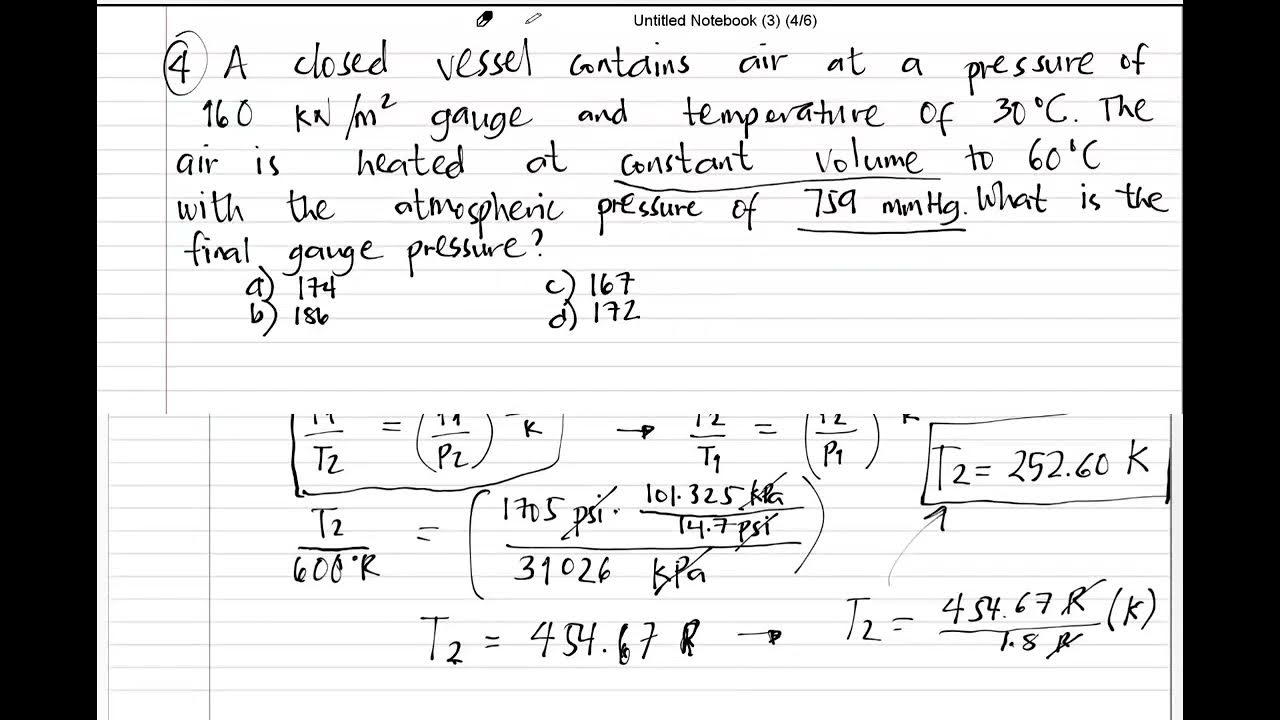 Untitled Notebook (3) (4/6)
④ A closed vessel contains air at a pressure of
160 kN/m² gauge and temperature of 30°C. The
air is heated at constant volume to 60°C
with the atmospheric pressure of 759 mmHg. What is the
final gauge pressure?
a) 174 c) 167
b) 186 d) 172
T1/T2 = (P1/P2) K → T2/T1 = (P2/P1) K
T2 = 252.60 K
T2/600°R = (1705 psi · 101.325 kPa/14.7 psi / 31026 kPa)
T2 = 454.67 R → T2 = 454.67 R/1.8 R (K)